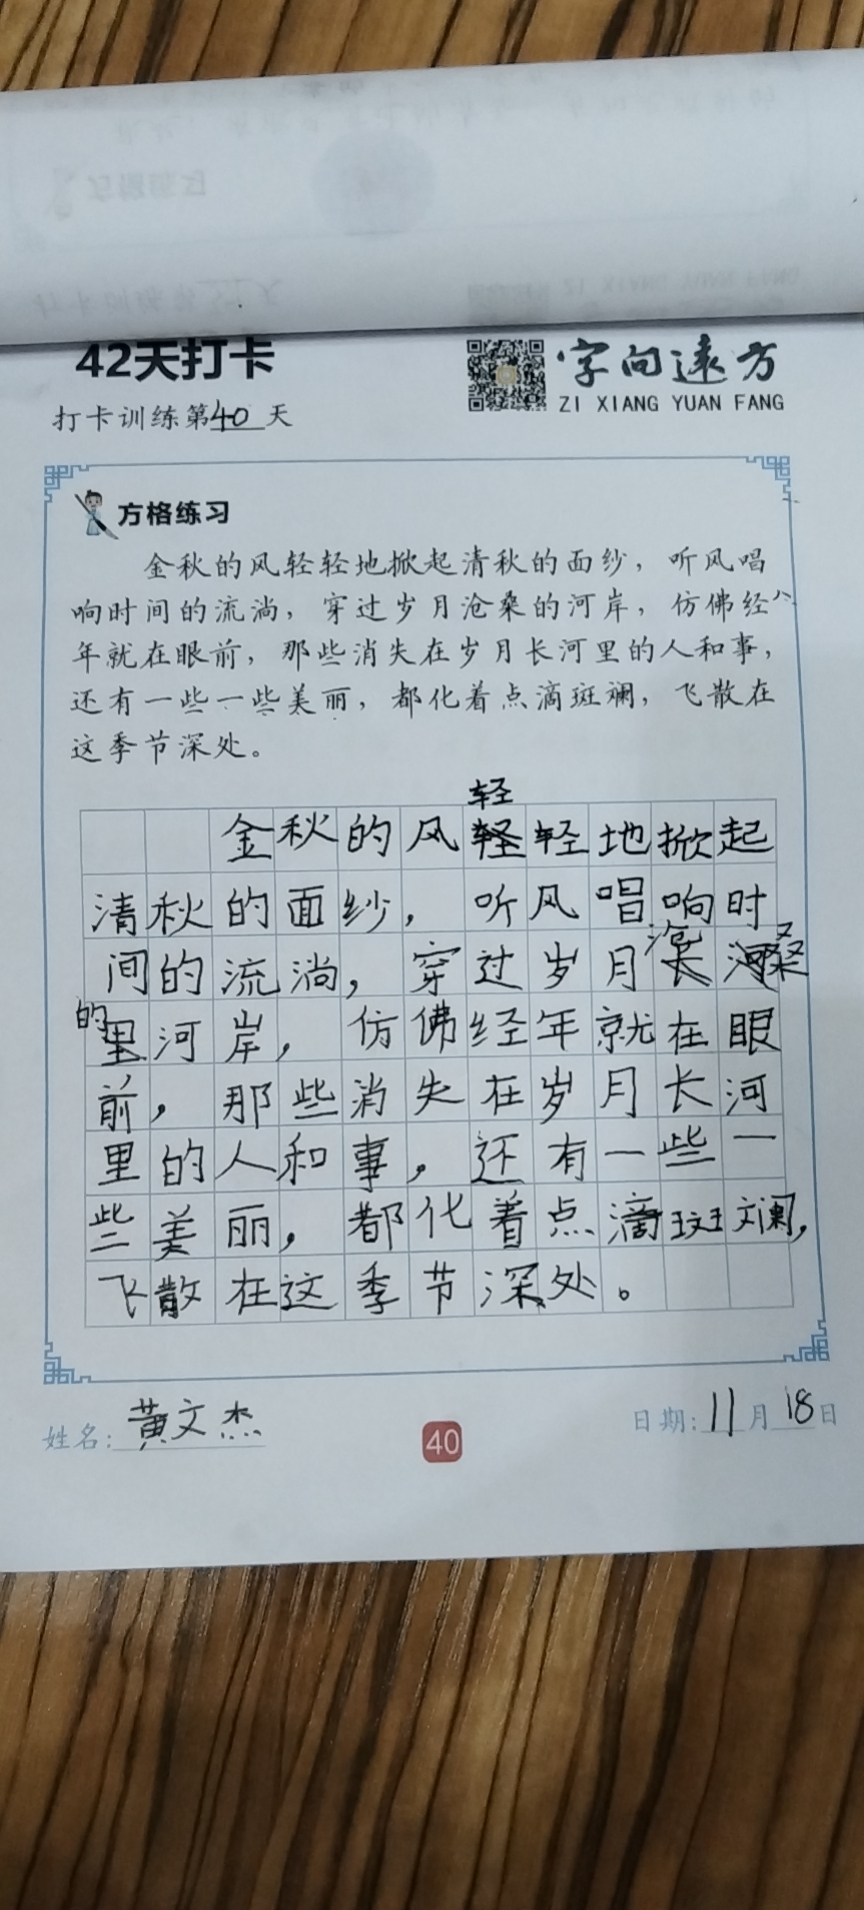 42天打卡
字向远方
ZI XIANG YUAN FANG
打卡训练第40天
方格练习
金秋的风轻轻地掀起清秋的面纱，听风唱
响时间的流淌，穿过岁月沧桑的河岸，仿佛经
年就在眼前，那些消失在岁月长河里的人和事，
还有一些一些美丽，都化着点滴斑斓，飞散在
这季节深处。
轻
金秋的风轻轻地掀起
清秋的面纱，听风唱响时
间的流淌，穿过岁月沧桑
的河岸，仿佛经年就在眼
前，那些消失在岁月长河
里的人和事，还有一些一
些美丽，都化着点滴斑斓，
飞散在这季节深处。
姓名：黄文杰
40
日期：11月18日